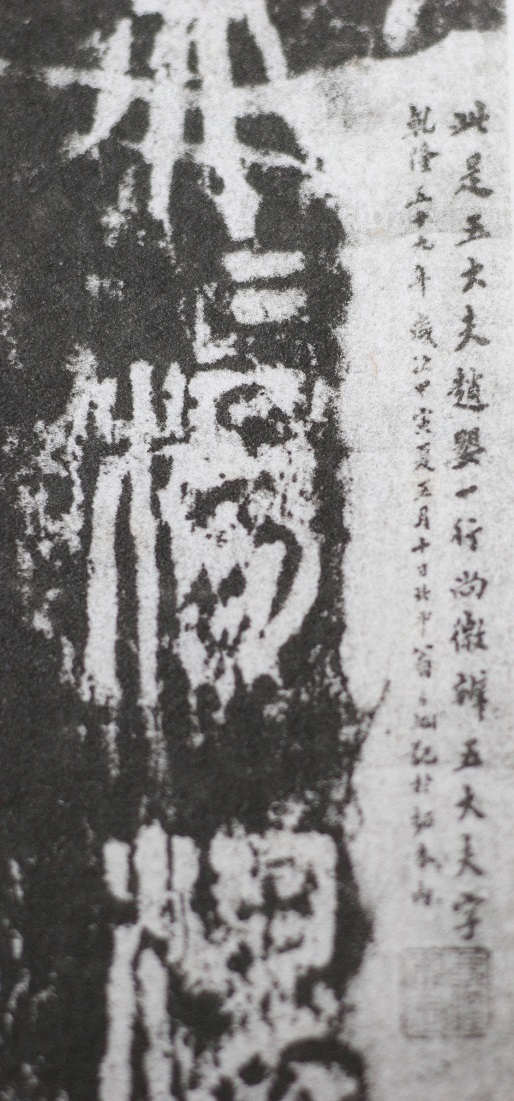 此是五大夫趙嬰一行尚微辨五大夫字
乾隆五十九年歲次甲寅夏五月十日北平翁方綱記於
楊樛